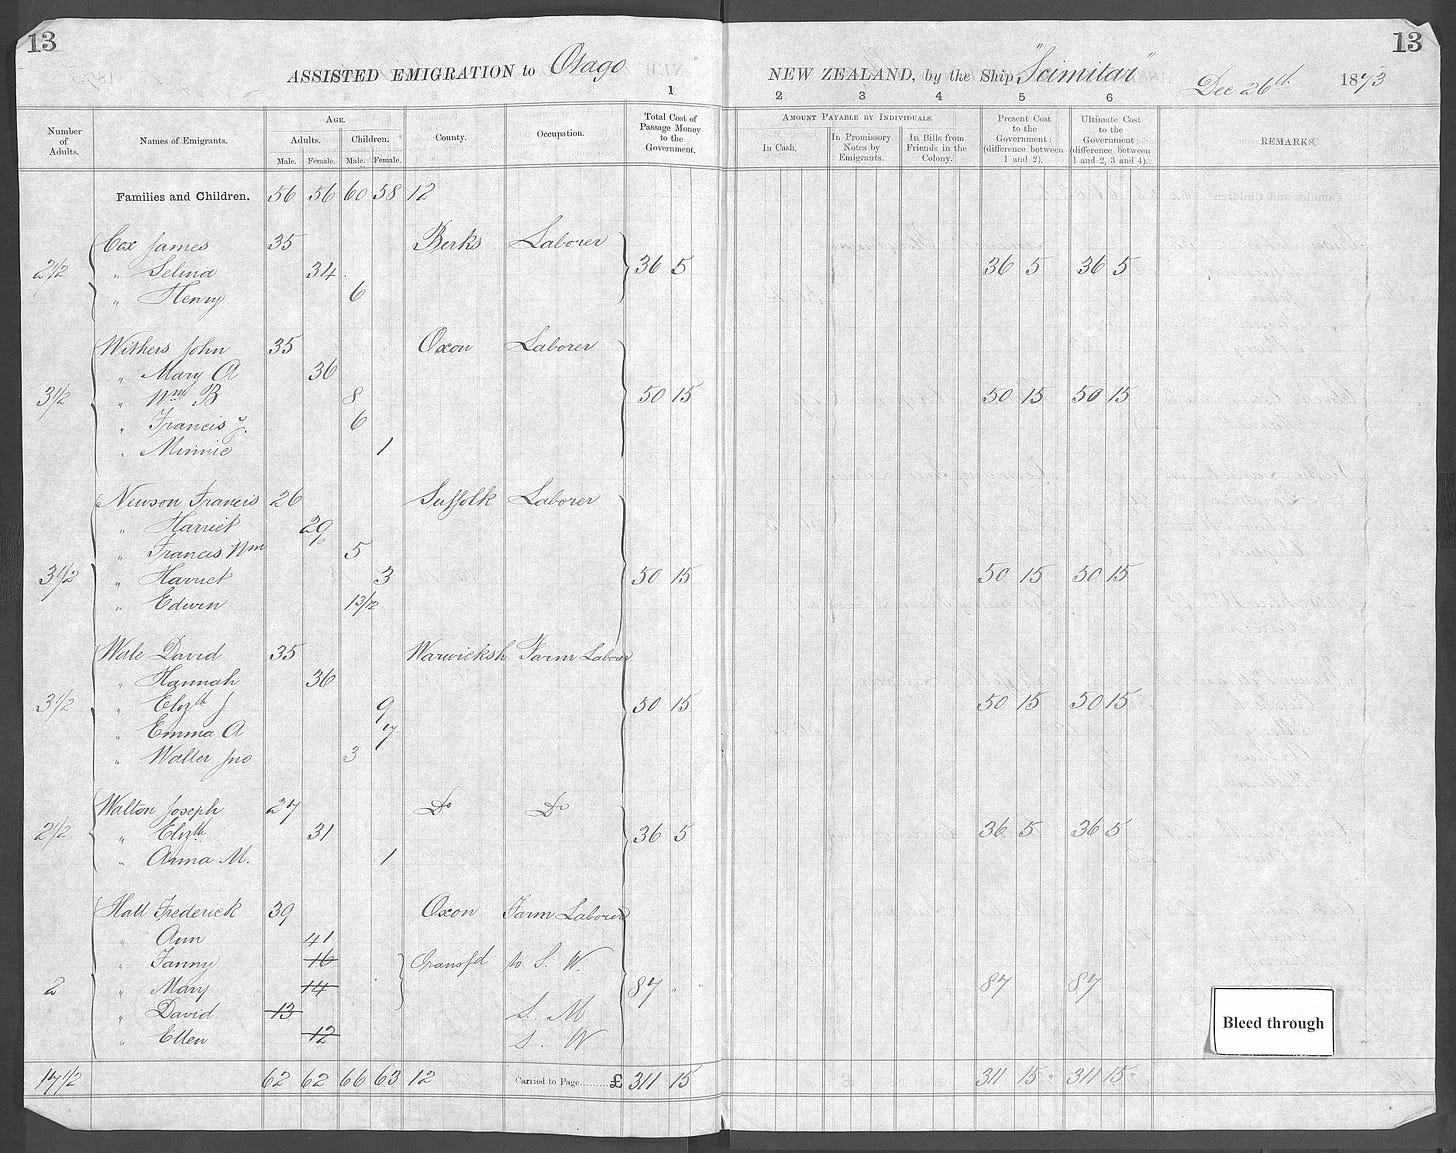 13 13
ASSISTED EMIGRATION to Otago NEW ZEALAND, by the Ship "Scimitar" Dec 26th 1873
1 2 3 4 5 6
Number of Adults. Names of Emigrants. Age. Adults. Male. Female. Children. Male. Female. County. Occupation. Total Cost of Passage Money to the Government. Amount Payable by Individuals. In Cash. In Promissory Notes by Emigrants. In Bills from Friends in the Colony. Present Cost to the Government: (difference between 1 and 2). Ultimate Cost to the Government: (difference between 1 and 2, 3 and 4). REMARKS.
Families and Children. 56 56 60 58 12
Cox James 35 Berks Laborer
2 1/2 " Selina 34 36 5 36 5 36 5
" Henry 6
Withers John 35 Oxon Laborer
" Mary A 36
3 1/2 " Wm B 8 50 15 50 15 50 15
" Francis J. 6
" Minnie 1
Newson Francis 26 Suffolk Laborer
" Harriet 29
" Francis Wm 5
3 1/2 " Harriet 3 50 15 50 15 50 15
" Edwin 13/12
Wale David 35 Warwicksh Farm Laborer
" Hannah 36
3 1/2 " Elizth J 9 50 15 50 15 50 15
" Emma A 7
" Walter Jno 3
Walton Joseph 27 Do Do
2 1/2 " Elizth 31 36 5 36 5 36 5
" Anna M. 1
Hall Frederick 39 Oxon Farm Laborer
" Ann 41
" Fanny 16 Transfd to S. W.
2 " Mary 14 87 " " 87 87
" David 13 S. M
" Ellen 12 S. W
Bleed through
17 1/2 62 62 66 63 12 Carried to Page.........£ 311 15 311 15 311 15